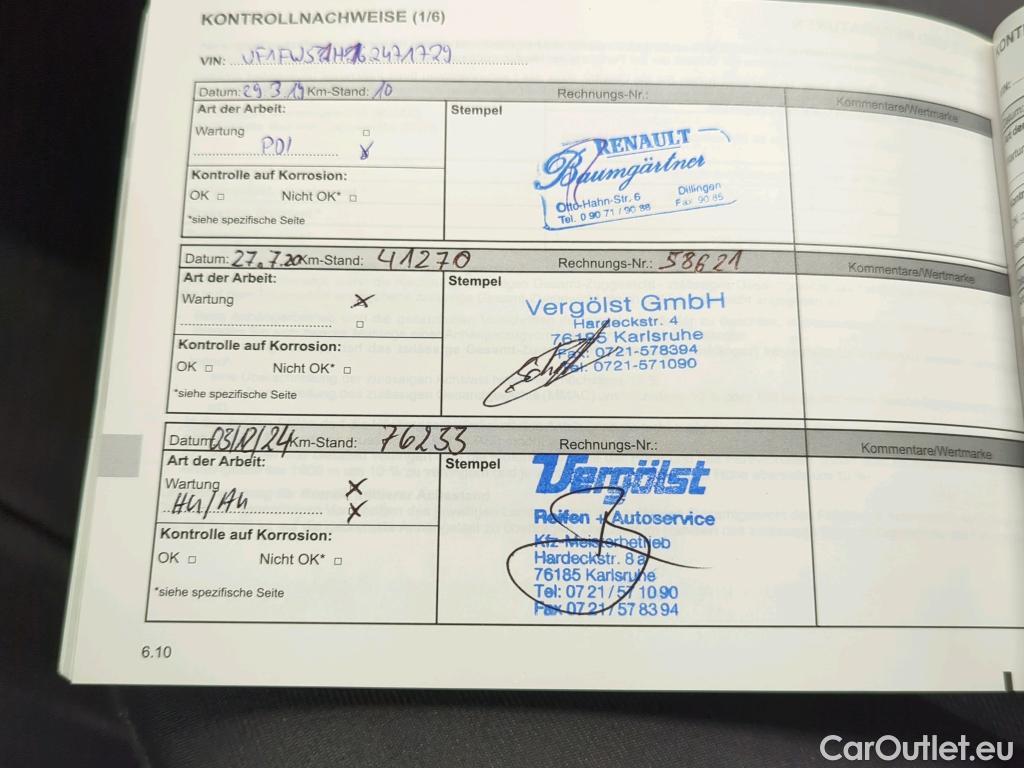 KONTROLLNACHWEISE (1/6)
VIN:
Datum: 29 3 19 Km-Stand: 10 Rechnungs-Nr.: Kommentare/Wertmarke
Art der Arbeit: Stempel
Wartung
PDI
Kontrolle auf Korrosion:
OK □ Nicht OK* □
*siehe spezifische Seite
RENAULT
Baumgärtner
Otto-Hahn-Str. 6 Dillingen
Tel. 0 90 71 / 90 88 Fax 90 85
Datum: 27.7.20 Km-Stand: 41270 Rechnungs-Nr.: 58621 Kommentare/Wertmarke
Art der Arbeit: Stempel
Wartung
Kontrolle auf Korrosion:
OK □ Nicht OK* □
*siehe spezifische Seite
Vergölst GmbH
Hardeckstr. 4
76185 Karlsruhe
Fax: 0721-578394
Tel: 0721-571090
Datum 03/12/24 Km-Stand: 76233 Rechnungs-Nr.: Kommentare/Wertmarke
Art der Arbeit: Stempel
Wartung
HU/AU
Kontrolle auf Korrosion:
OK □ Nicht OK* □
*siehe spezifische Seite
Vergölst
Reifen + Autoservice
Kfz-Meisterbetrieb
Hardeckstr. 8a
76185 Karlsruhe
Tel: 07 21 / 57 10 90
Fax 07 21 / 57 83 94
6.10
CarOutlet.eu